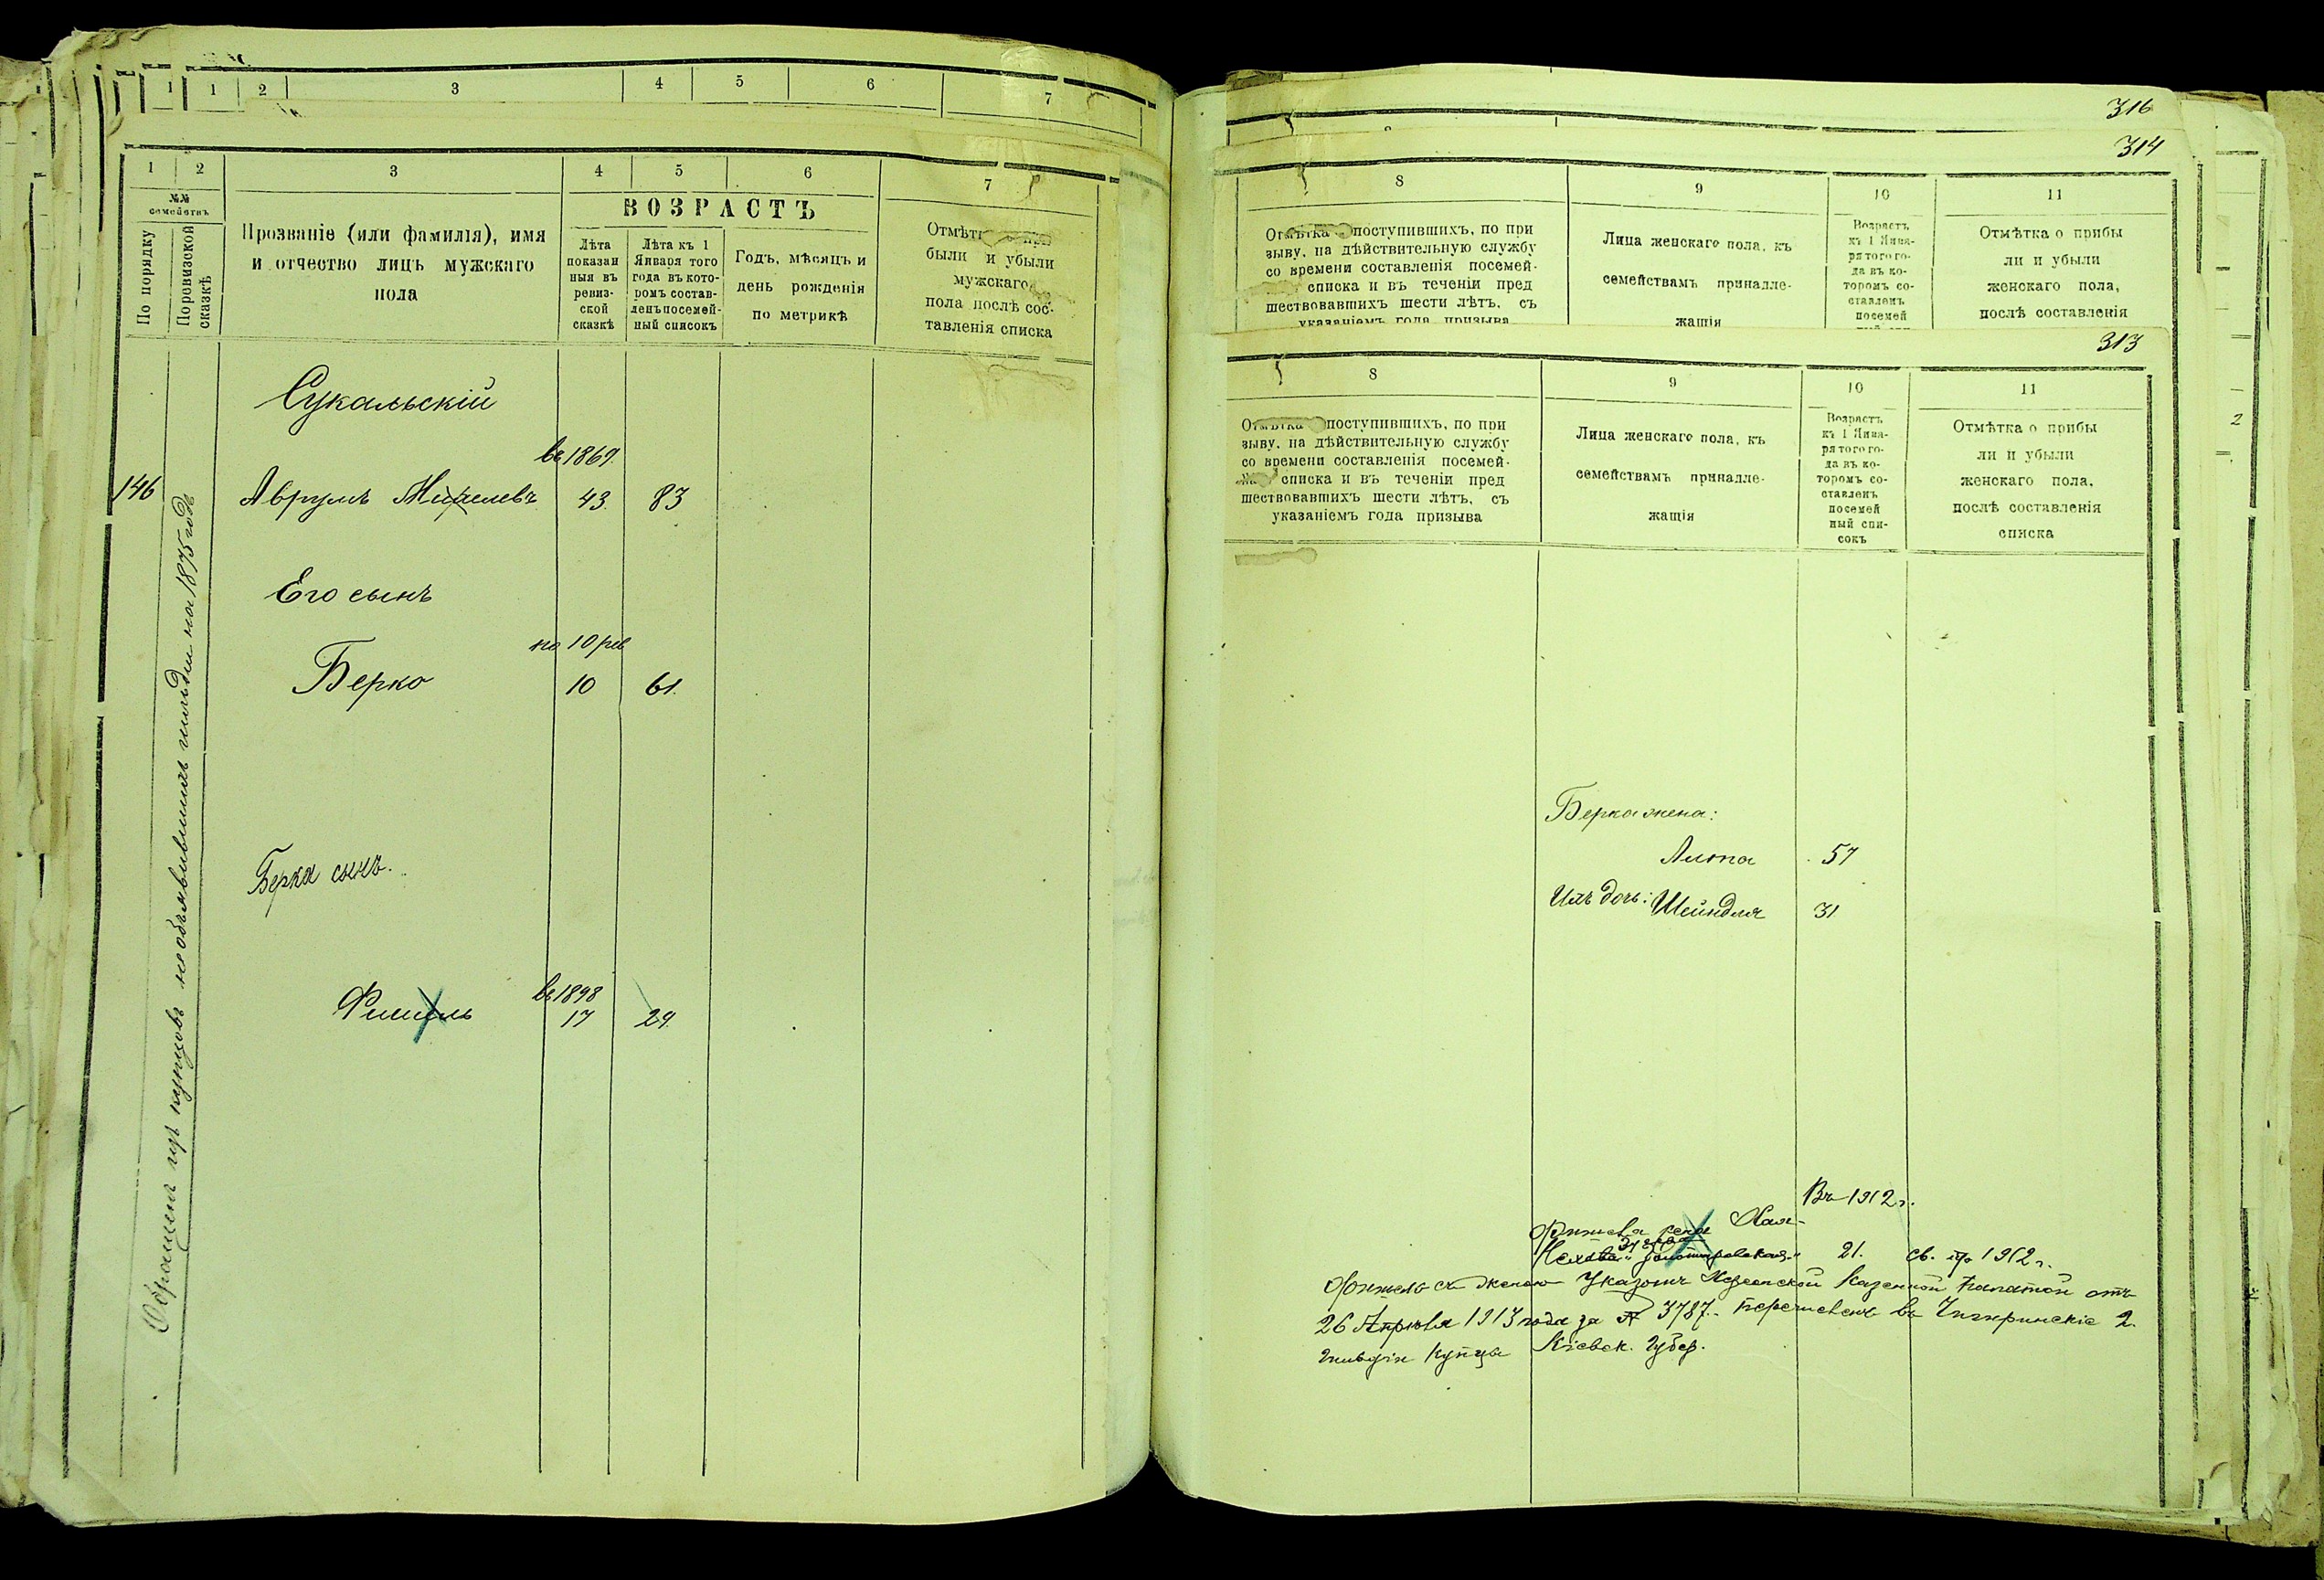 1 1 2 3 4 5 6 7
1 2 3 4 5 6 7
№№ семействъ
По порядку
По ревизской сказкѣ
Прозваніе (или фамилія), имя
и отчество лицъ мужскаго
пола
ВОЗРАСТЪ
Лѣта
показан
ныя въ
ревиз-
ской
сказкѣ
Лѣта къ 1
Января того
года въ кото-
ромъ состав-
ленъ посемей-
ный списокъ
Годъ, мѣсяцъ и
день рожденія
по метрикѣ
были и убыли
мужскаго
пола послѣ сос-
тавленія списка
Сукальскій
въ 1869.
146 Аврумъ 43. 83
Его сынъ
по 10 рев
Берко 10 61.
Берка сынъ.
въ 1898
Фишель 17 29.
Обращенъ изъ купцовъ необъявившихъ гильдіи на 1875 годъ
316
314
8 9 10 11
Отмѣтка о поступившихъ, по при
зыву, на дѣйствительную службу
со времени составленія посемей-
списка и въ теченіи пред
шествовавшихъ шести лѣтъ, съ
указаніемъ года призыва
Лица женскаго пола, къ
семействамъ принадле-
жащія
Возрастъ
къ 1 Янва-
ря того го-
да въ ко-
торомъ со-
ставленъ
посемей
Отмѣтка о прибы
ли и убыли
женскаго пола,
послѣ составленія
313
8 9 10 11
Отмѣтка о поступившихъ, по при
зыву, на дѣйствительную службу
со времени составленія посемей-
списка и въ теченіи пред
шествовавшихъ шести лѣтъ, съ
указаніемъ года призыва
Лица женскаго пола, къ
семействамъ принадле-
жащія
Возрастъ
къ 1 Янва-
ря того го-
да въ ко-
торомъ со-
ставленъ
посемей
ный спи-
сокъ
Отмѣтка о прибы
ли и убыли
женскаго пола,
послѣ составленія
списка
2
Берка жена:
57
Ихъ дочь: Шейндля 31
Въ 1912 г.
Фишеля жена Хая-
21. св. 1912 г.
Фишель съ женою Указомъ Херсонской Казенной Палатой отъ
26 Апрѣля 1913 года за № 3787. перечисленъ въ Чигиринскіе 2.
гильдіи купцы Кіевск. губер.